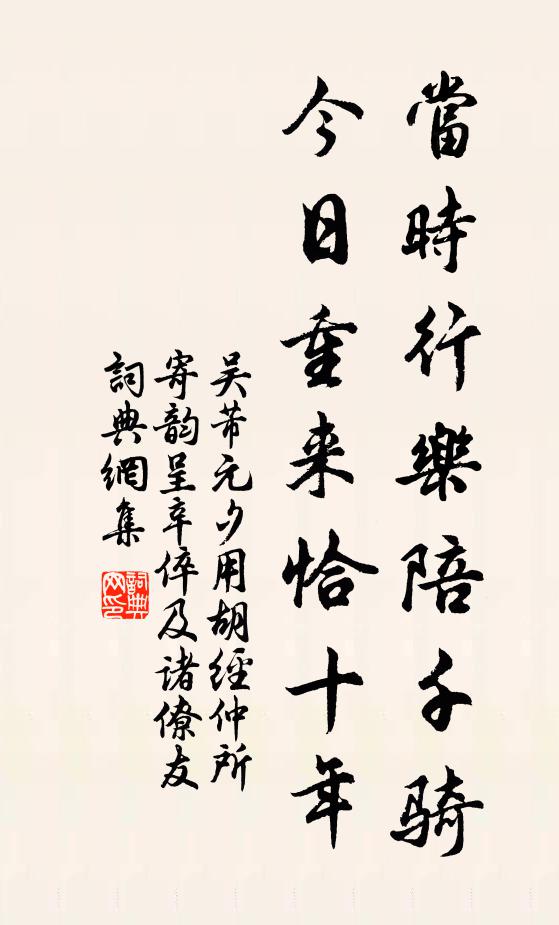 當時行樂陪千騎
今日重来恰十年
吴芾元夕用胡經仲所
寄韵呈辛倅及诸僚友
詞典網集
詞典
网印